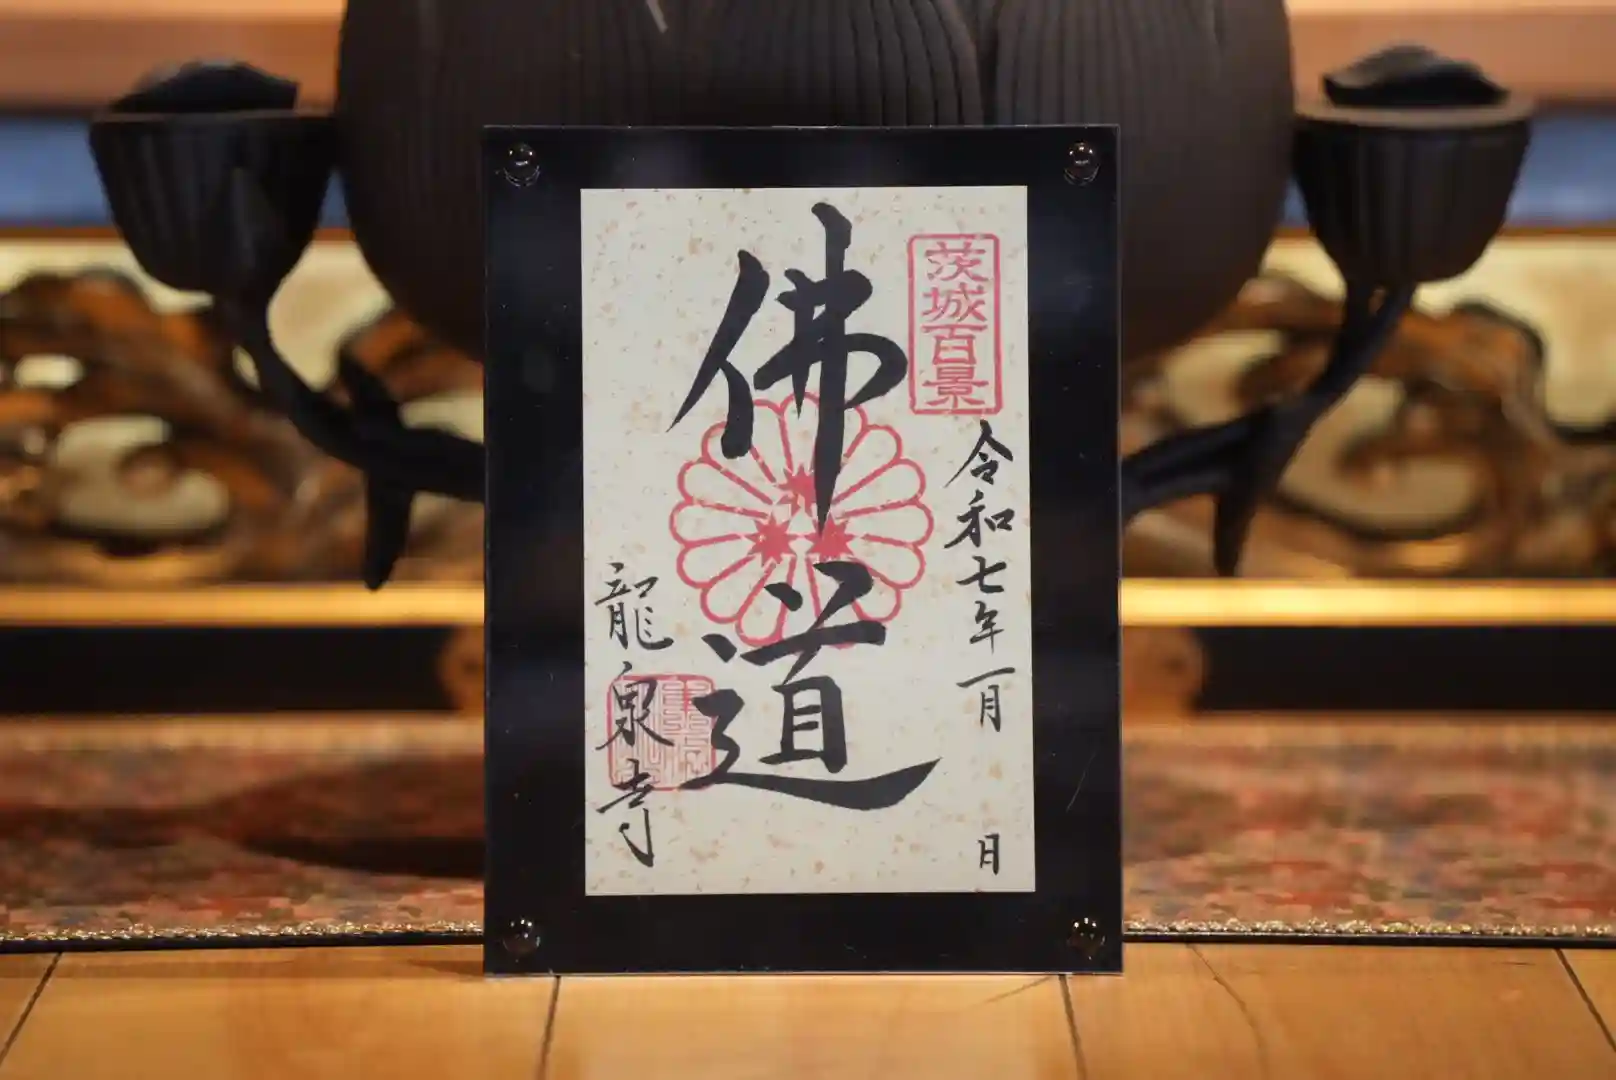 茨城百景
令和七年一月 日
佛道
龍泉寺